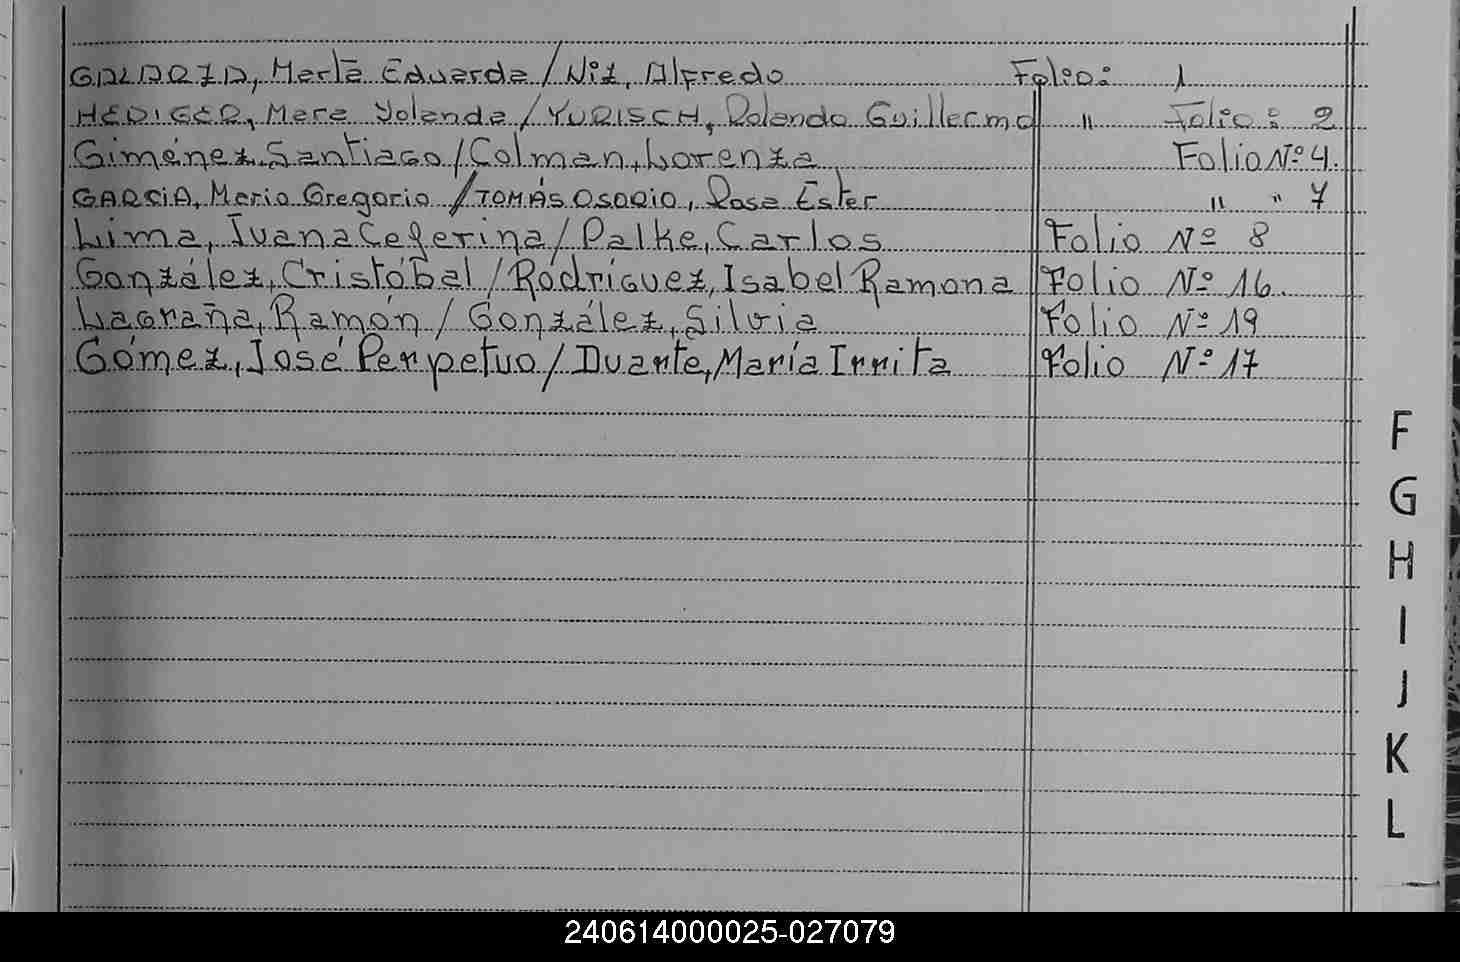 GALARZA, Marta Eduarda / Niz, Alfredo Folio: 1
HEDIGER, Mara Yolanda / YURISCH, Rolando Guillermo " Folio: 2
Giménez, Santiago / Colman, Lorenza Folio Nº 4.
GARCIA, Mario Gregorio / TOMÁS OSORIO, Rosa Ester " " 7
Lima, Juana Ceferina / Palke, Carlos Folio Nº 8
González, Cristóbal / Rodríguez, Isabel Ramona Folio Nº 16.
Lagraña, Ramón / González, Silvia Folio Nº 19
Gómez, José Perpetuo / Duarte, María Irrita Folio Nº 17
F
G
H
I
J
K
L
240614000025-027079